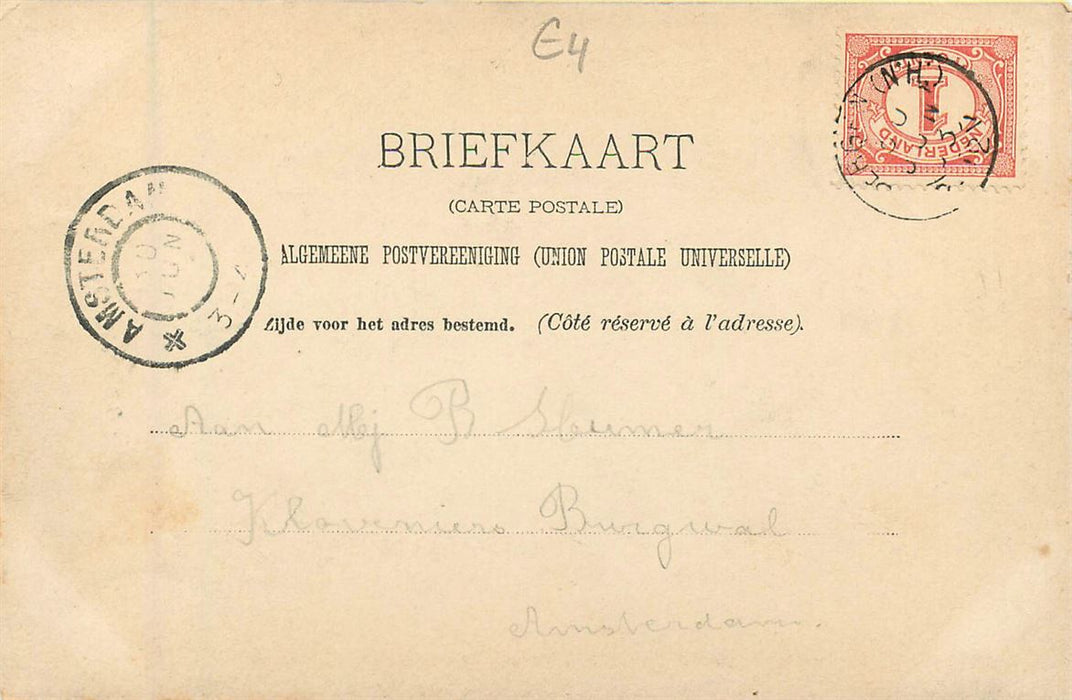 E4
BRIEFKAART
(CARTE POSTALE)
ALGEMEENE POSTVEREENIGING (UNION POSTALE UNIVERSELLE)
Zijde voor het adres bestemd. (Côté réservé à l'adresse).
Aan Mej B
Kloveniers Burgwal
Amsterdam.
AMSTERDAM
10 JUN
3-4
BERGEN (N.H.)
NEDERLAND
1